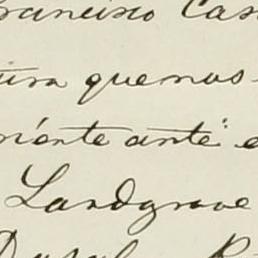 rancisco Cas
tira quemas
mente ante e
Landgrave